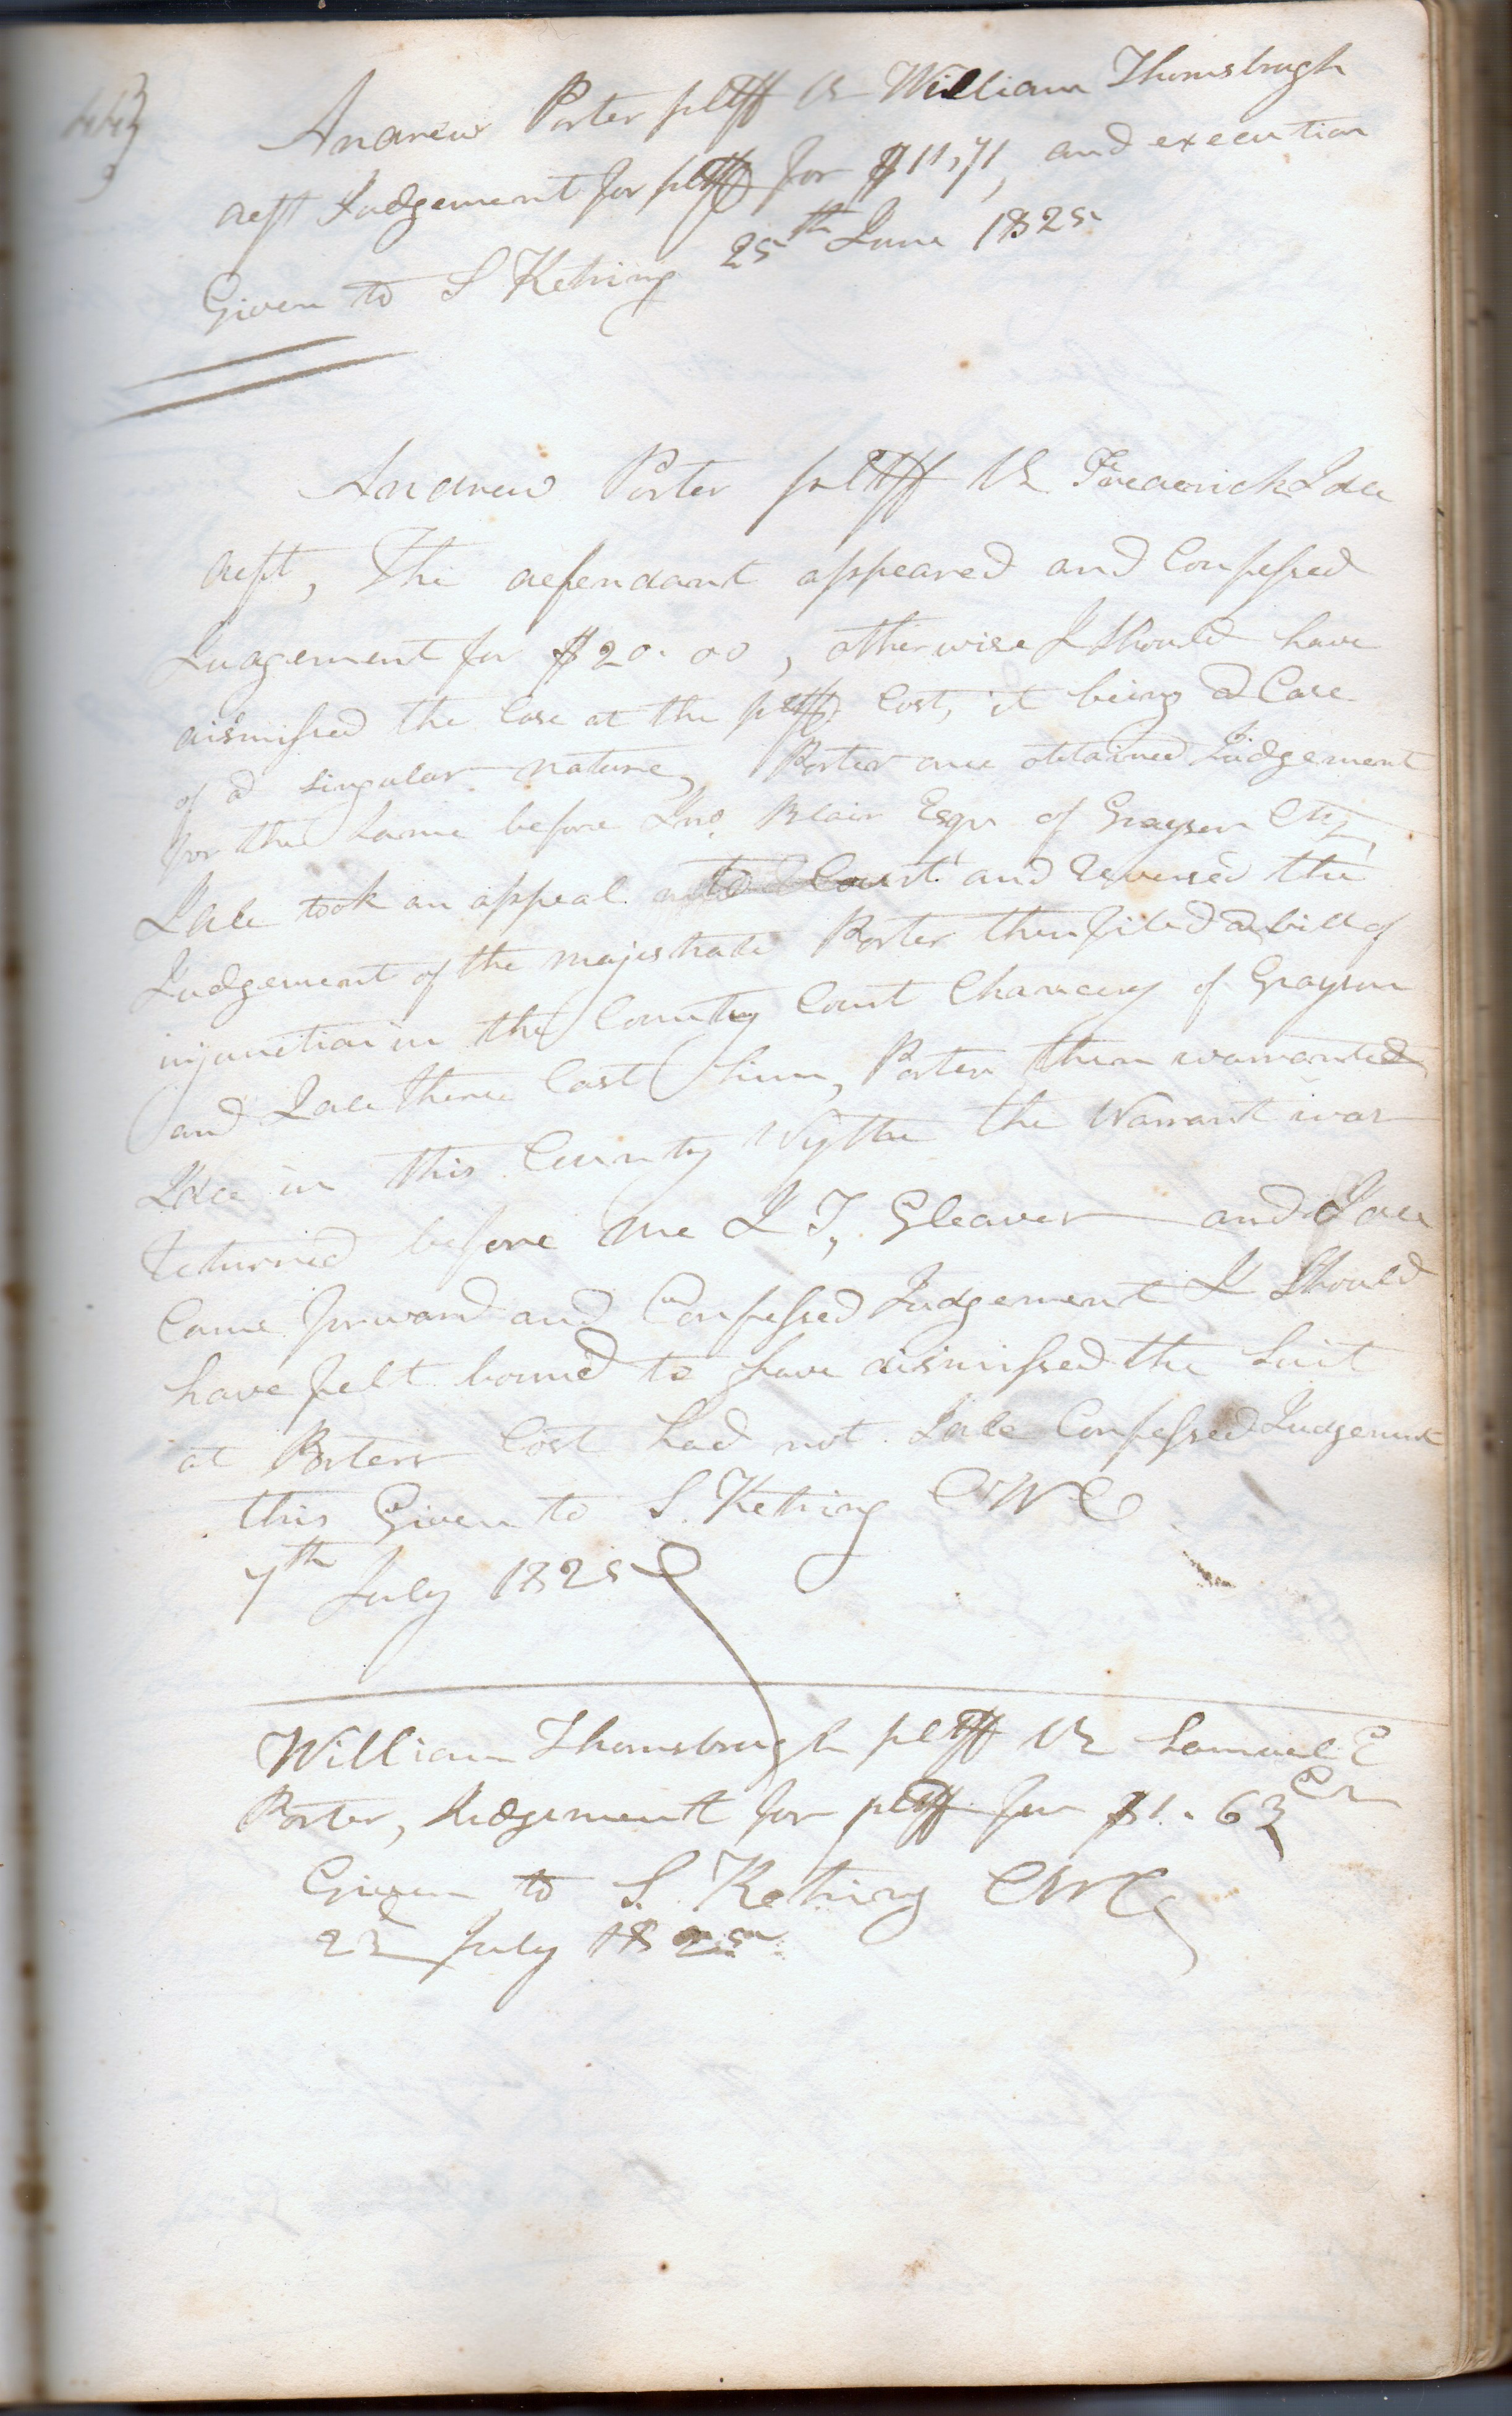 Andrew Porter pltff vs William Thornsbrugh
deft Judgement for pltff for $11,71, and execution
Given to S Kehring 25th June 1825
Andrew Porter pltff vs Frederick Idce
deft, The defendant appeared and Confessed
Judgement for $20.00, otherwise I should have
dismissed the Case at the pltffs Cost, it being a Case
of a singular nature, Porter once obtained Judgement
for the same before Jno. Blair Esqr of Grayson Cty,
took an appeal to Court and reversed the
Judgement of the majestrate Porter then filed a bill of
injunction in the County Court Chancery of Grayson
and there Cast him, Porter then warranted
in this County Wythe the Warrant was
returned before me J T, Gleaver and
Came forward and Confessed Judgement I should
have felt bound to have dismissed the suit
at Porters Cost had not Confessed Judgement
this Given to S. Kehring CWC
7th July 1825
William Thornsbrugh pltff vs Samuel E
Porter, Judgement for pltff for $1.63 Cts
Given to S. Kehring CWC
July 1825